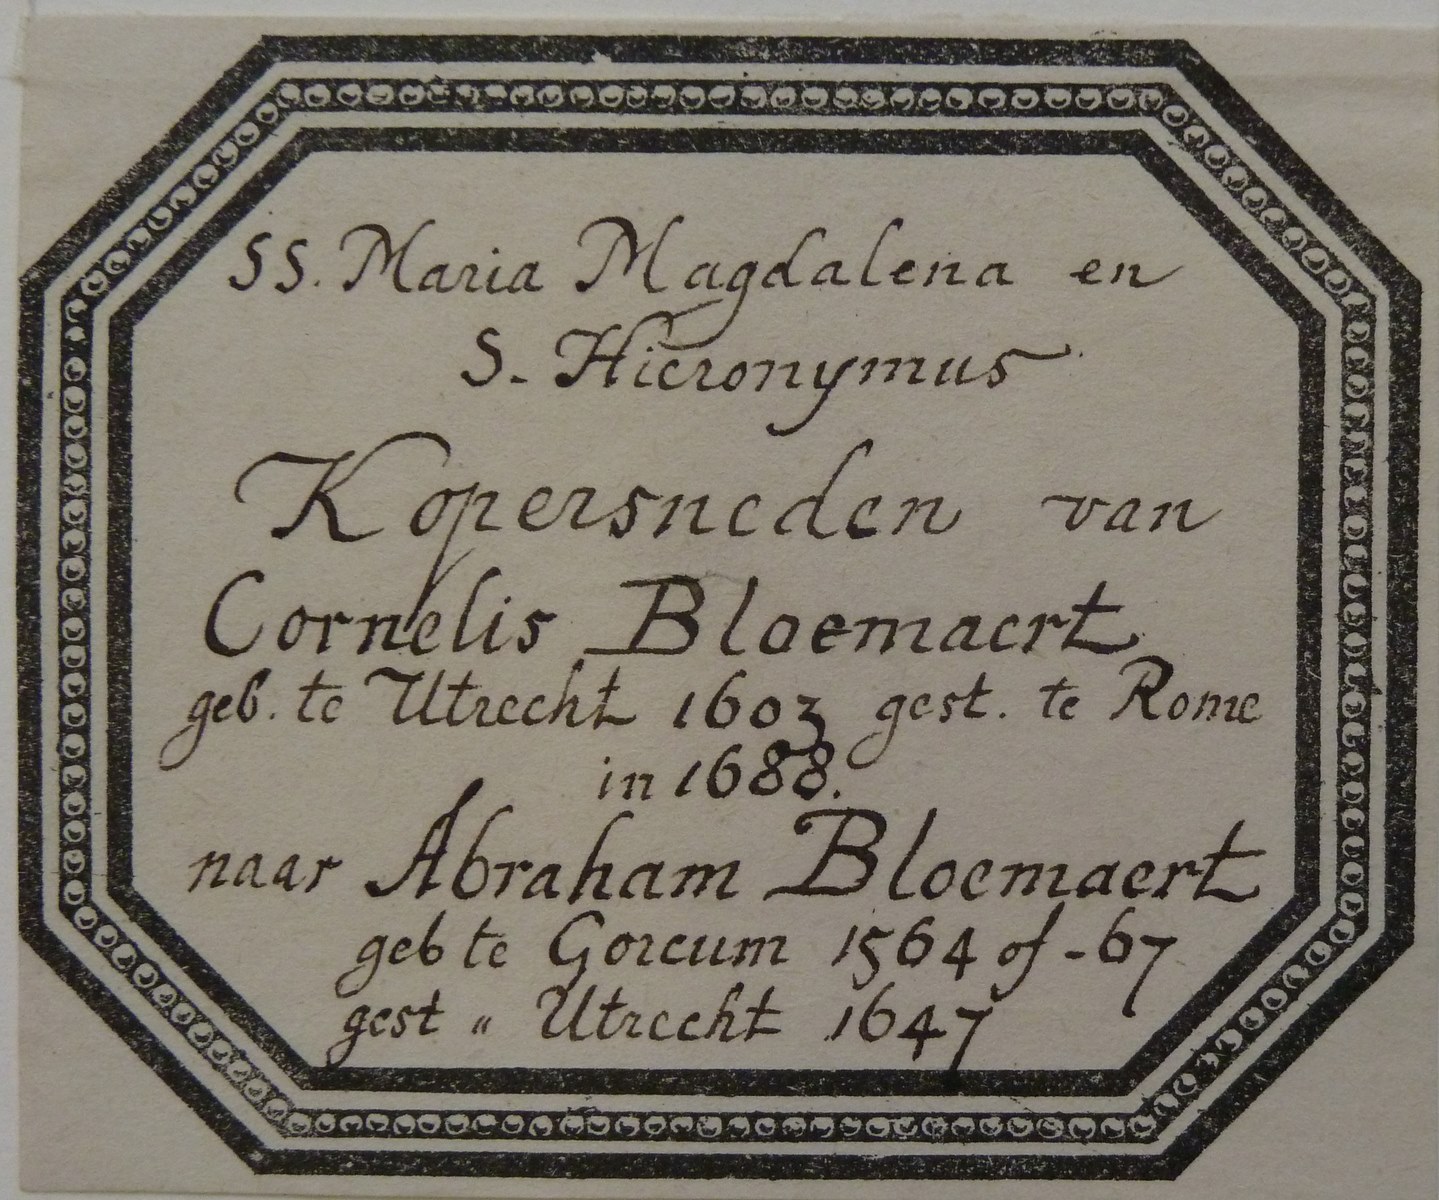 SS. Maria Magdalena en
S. Hieronymus
Kopersneden van
Cornelis Bloemaert
geb. te Utrecht 1603 gest. te Rome
in 1688.
naar Abraham Bloemaert
geb te Gorcum 1564 of -67
gest " Utrecht 1647